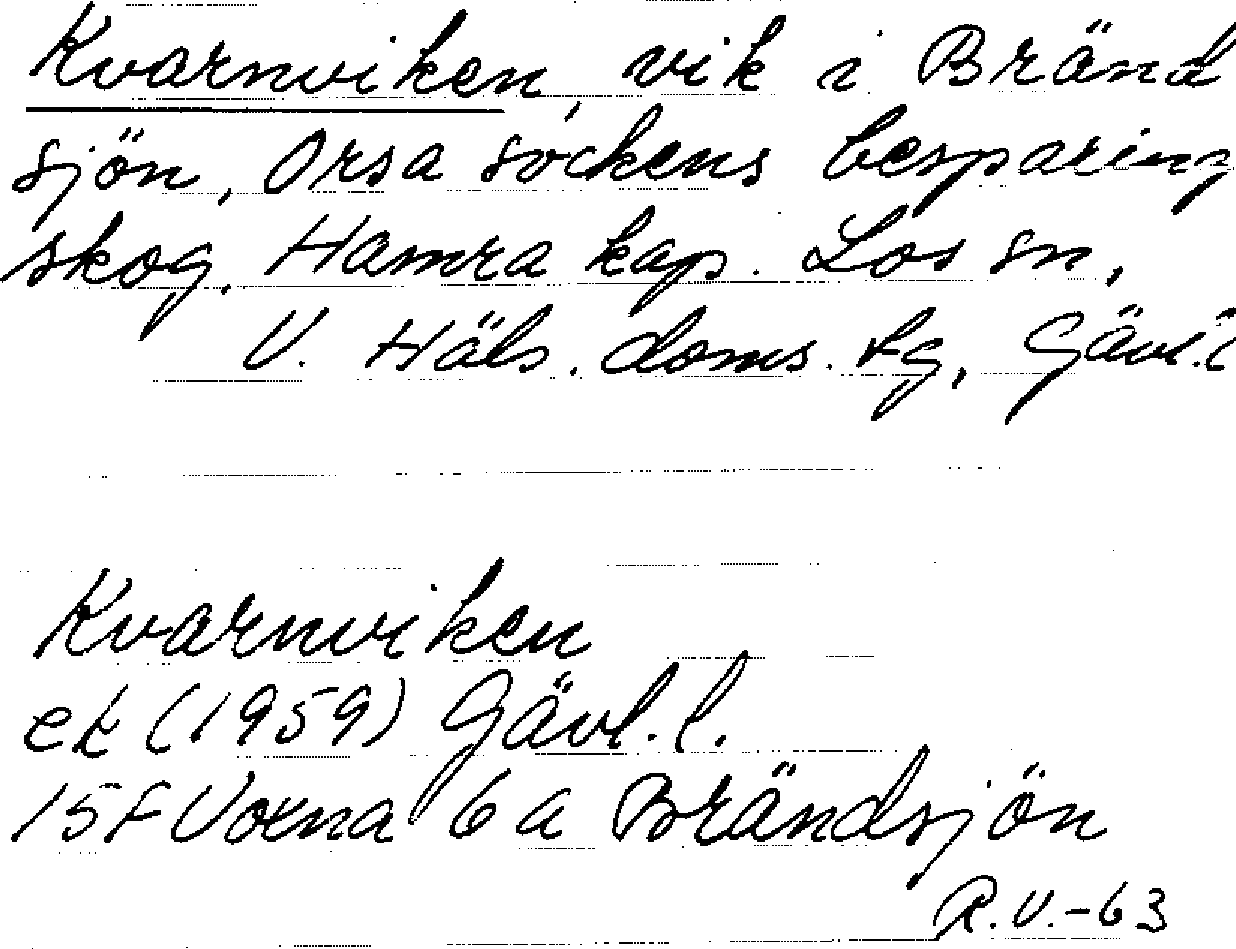 Kvarnviken, vik i Bränd
sjön, Orsa sockens besparing
skog, Hamra kap. Los sn,
V. Häls. doms. tg, Gävl. l
Kvarnviken
ek (1959) Gävl. l.
15F Voxna 6a Brändsjön
R.V.-63